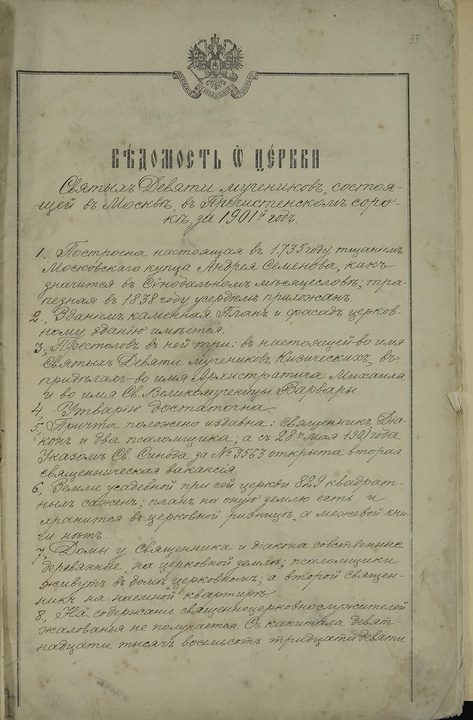 33
ВѢДОМОСТЬ Ѡ ЦЕ́РКВИ
Святыхъ Девяти мучениковъ, состоя-
щей въ Москвѣ, въ Пречистенскомъ соро-
кѣ, за 1901й годъ.
1. Построена настоящая въ 1735 году, тщаніемъ
Московскаго купца Андрея Семенова, какъ
значится въ Сѵнодальномъ мѣсяцесловѣ; тра-
пезная въ 1838 году усердіемъ прихожан.
2. Зданіемъ каменная. Планъ и фасадъ церков-
ному зданію имѣется.
3. Престоловъ въ ней три: въ настоящей во имя
Святыхъ Девяти Мучениковъ Кизическихъ, въ
придѣлахъ-во имя Архистратига Михаила
и во имя Св. Великомученицы Варвары.
4. Утварію достаточна.
5. Причта положено издавна: священникъ, Діа-
конъ и два псаломщика; а съ 28го Мая 1901 года
Указомъ Св. Синода за № 3563 открыта вторая
священническая вакансія.
6. Земли усадебной при сей церкви 829 квадрат-
ныхъ саженъ; планъ на оную землю есть и
хранится въ церковной ризницѣ, а межевой кни-
ги нѣтъ.
7. Домы у Священника и діакона собственные
деревянные, на церковной землѣ; псаломщики
живутъ въ домѣ церковномъ; а второй священ-
никъ на наемной квартирѣ.
8. На содержаніе священноцерковнослужителей
жалованья не получается. Съ капитала девят-
надцати тысячъ восемьсотъ тридцати девяти